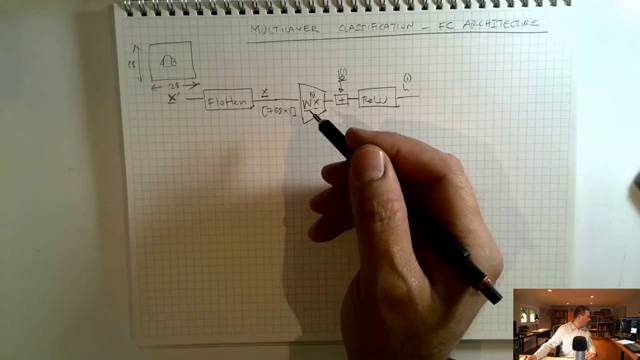 MULTILAYER CLASSIFICATION - FC ARCHITECTURE
28
28
x'
Flatten
x
[768x1]
W(1)x
b(1)
+
ReLU
L(1)